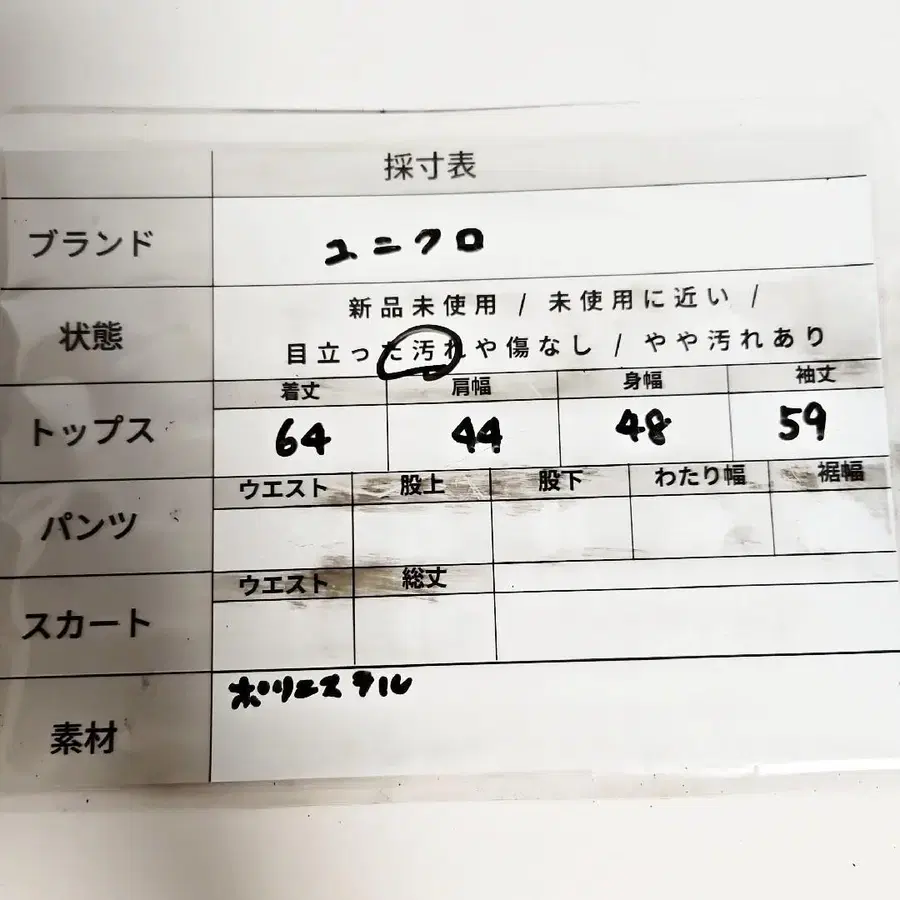 採寸表
ブランド ユニクロ
新品未使用 / 未使用に近い /
状態
目立った汚れや傷なし / やや汚れあり
着丈 肩幅 身幅 袖丈
トップス 64 44 48 59
ウエスト 股上 股下 わたり幅 裾幅
パンツ
ウエスト 総丈
スカート
ポリエステル
素材